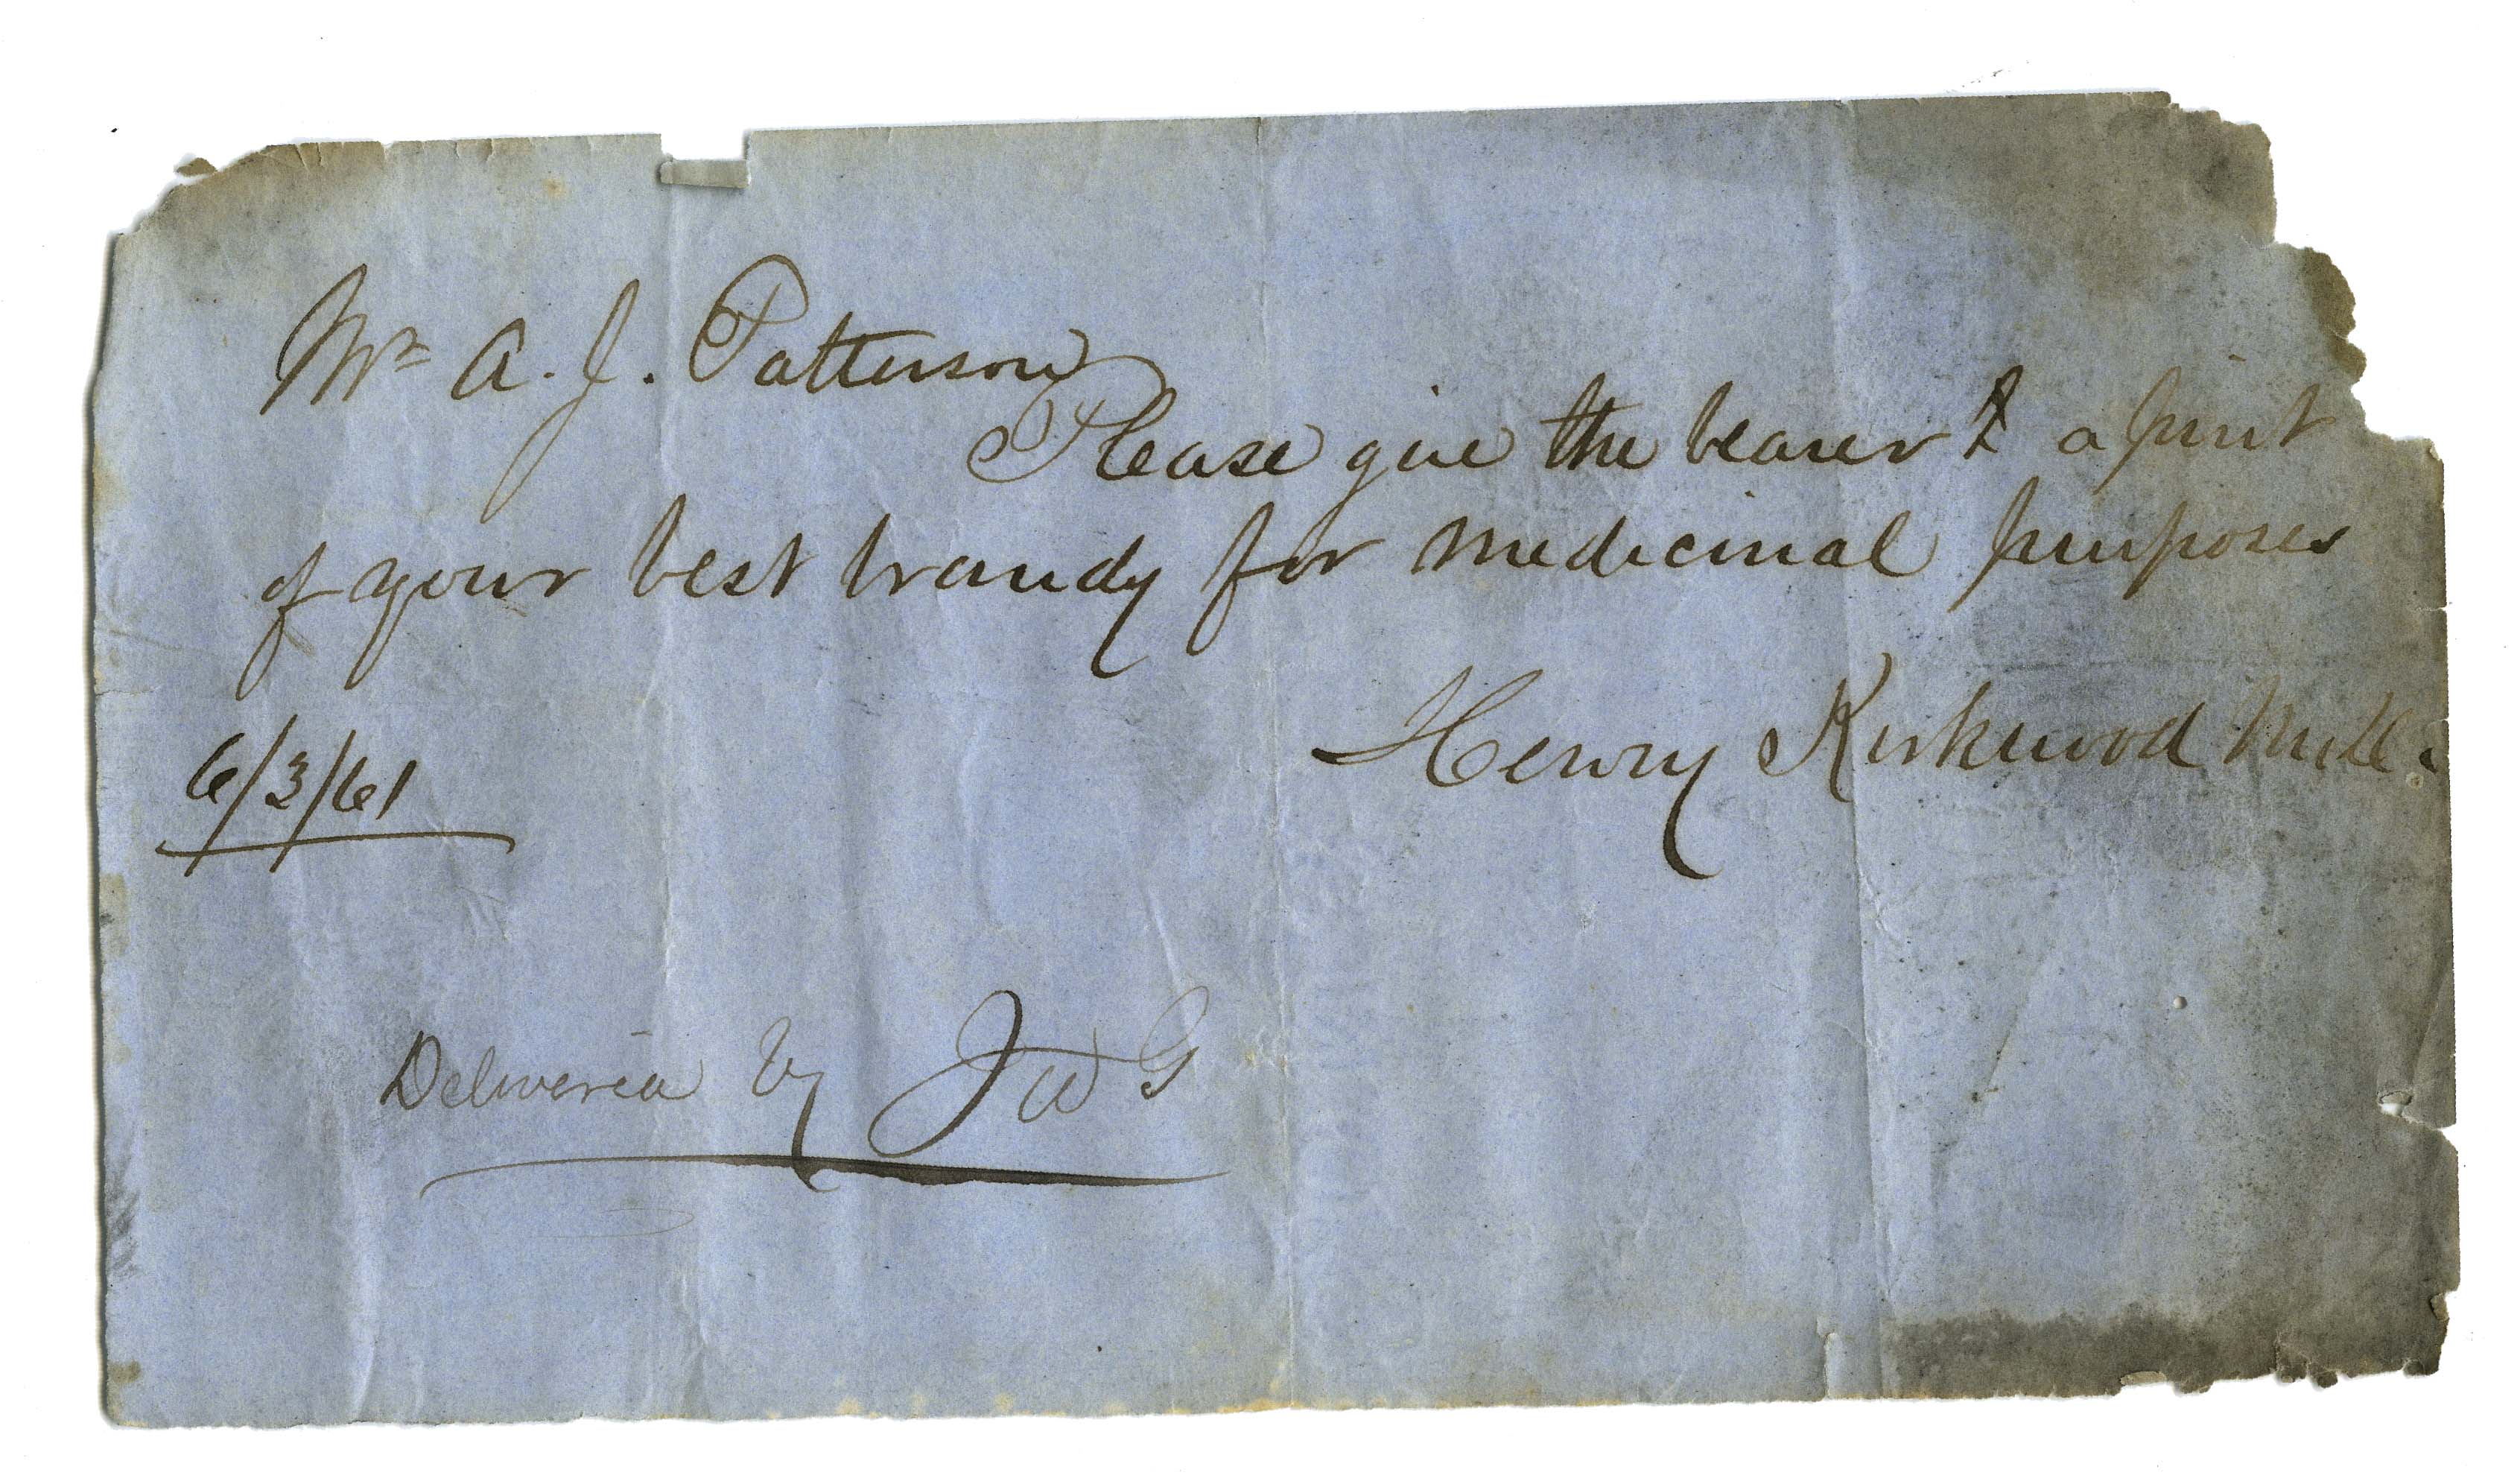 Mr A. J. Patterson
Please give the bearer a pint
of your best brandy for medicinal purposes
Henry Kirkwood
6/3/61
Delivered by J W G